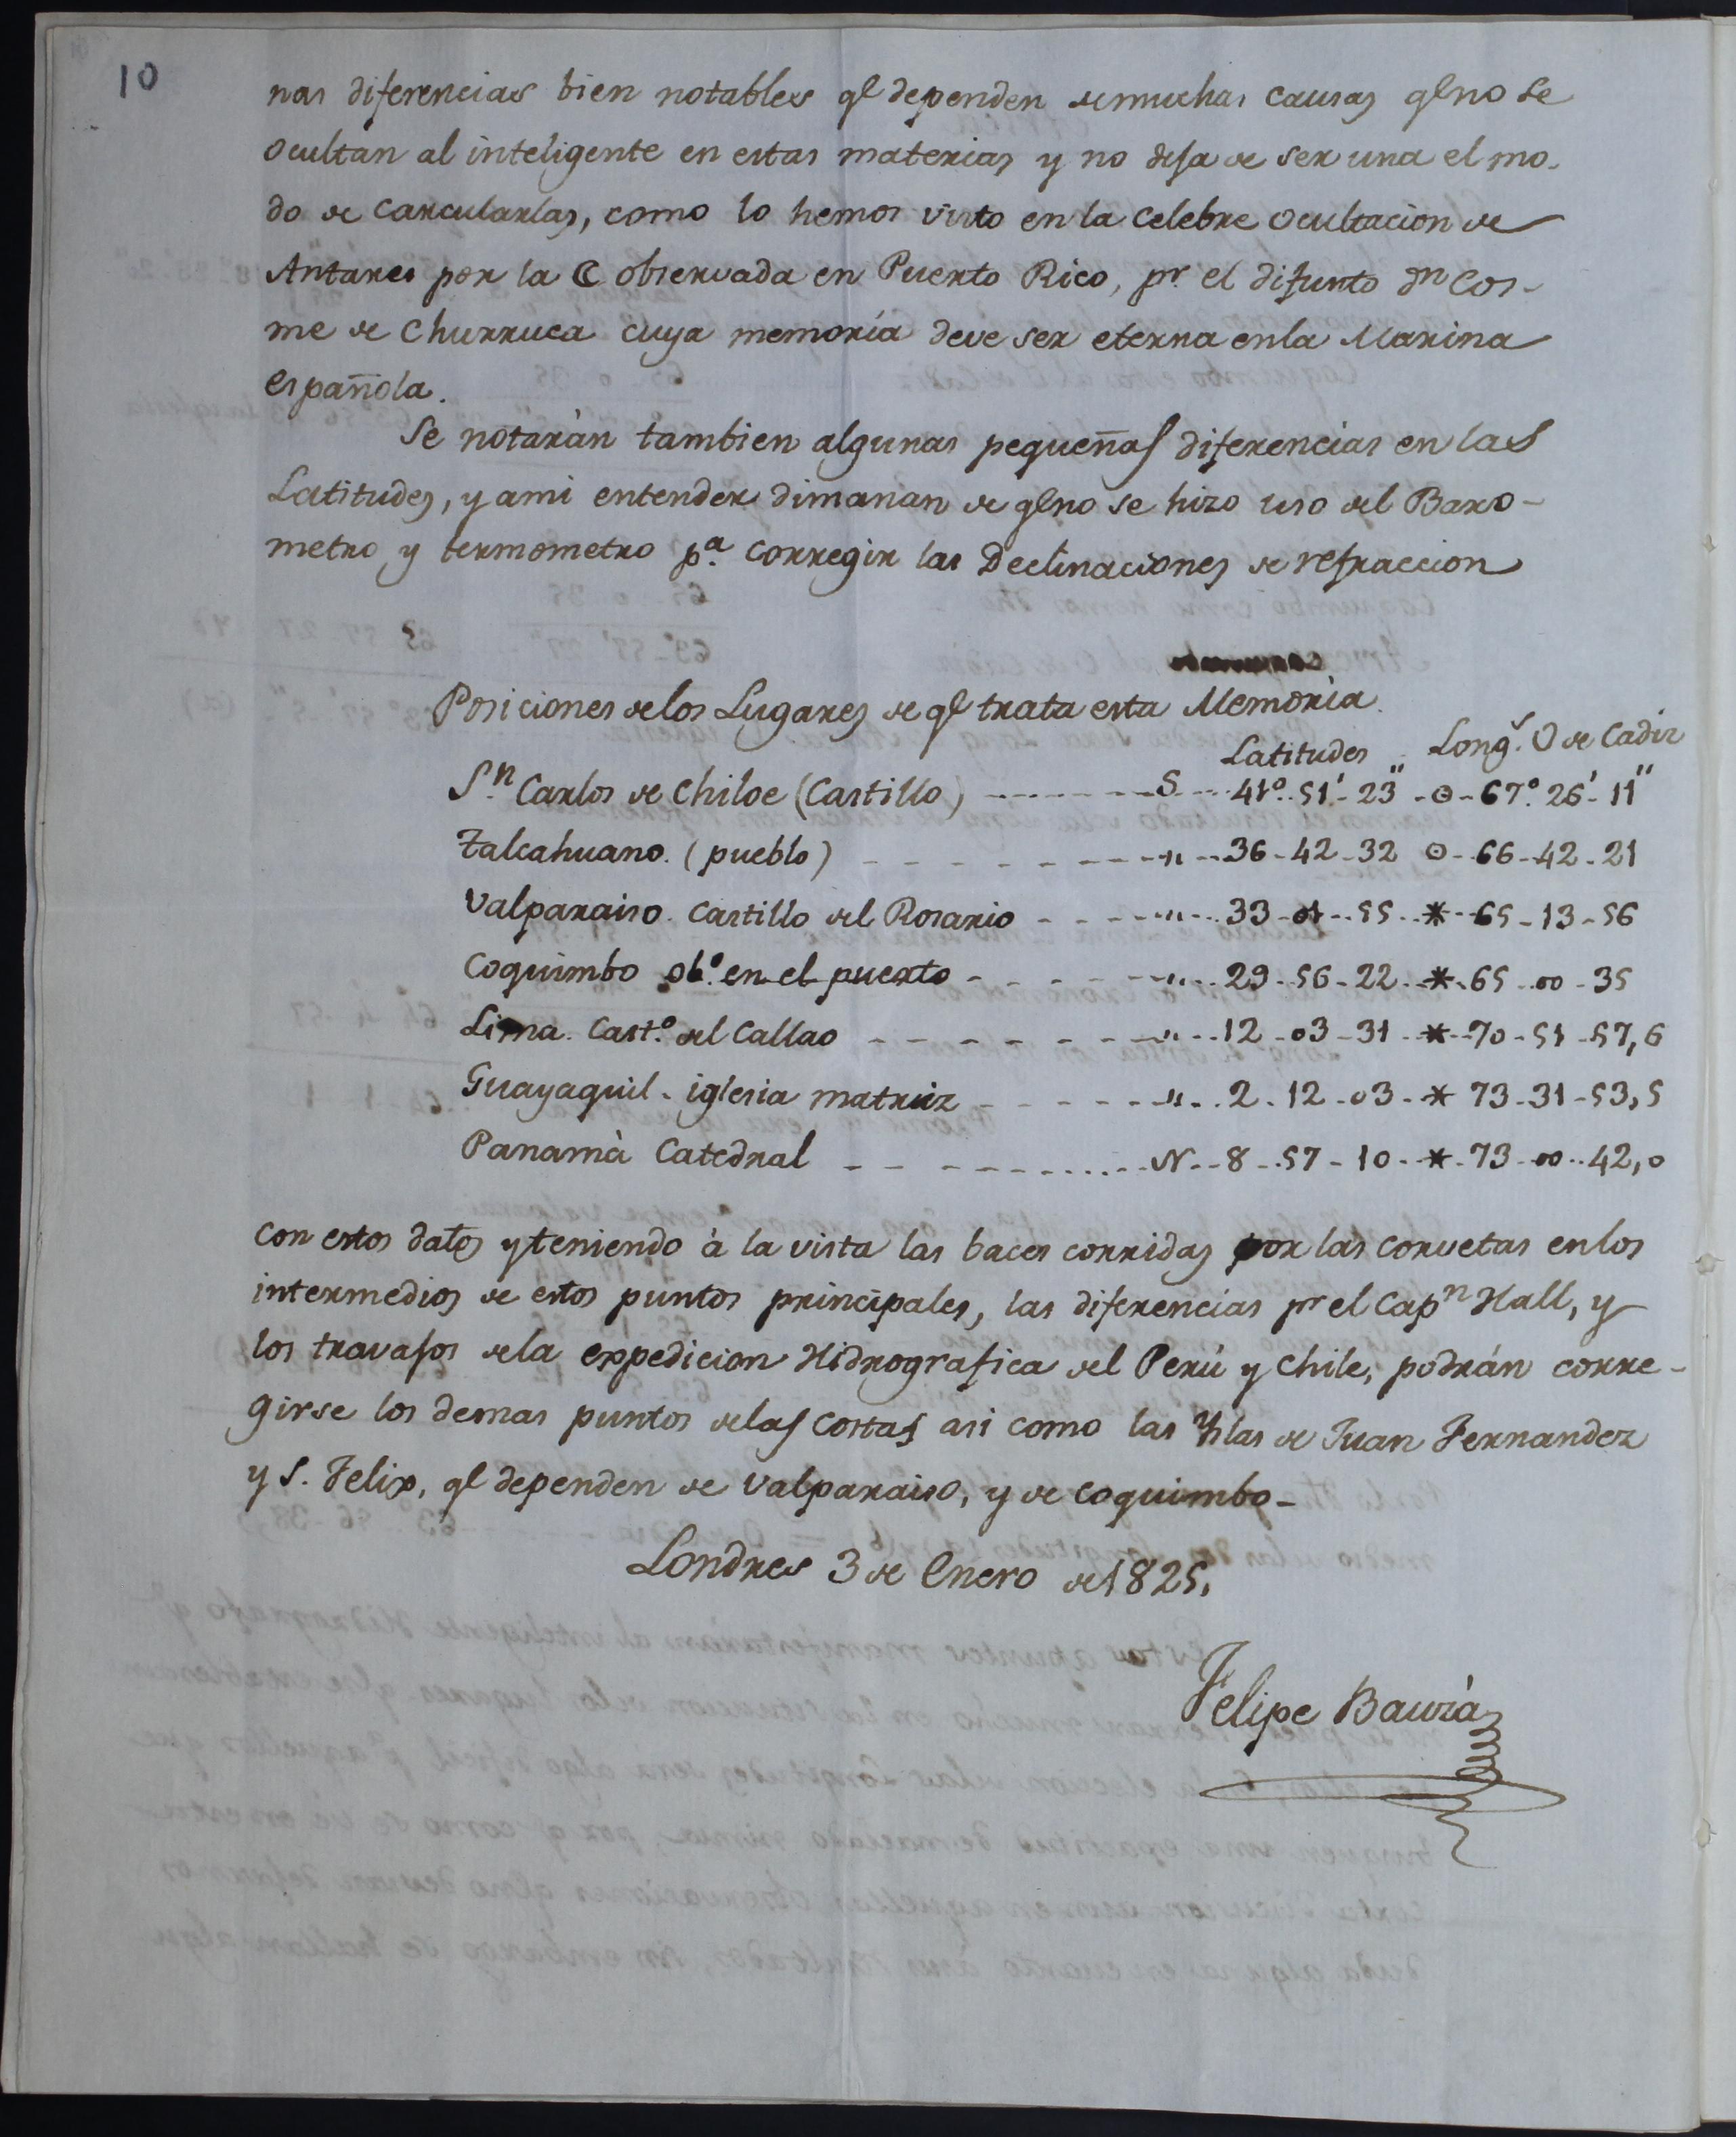 10
nas diferencias bien notables ql dependen de muchas causas ql no se
ocultan al inteligente en estas materias y no deja de ser una el mo-
do de carcularlas, como lo hemos visto en la celebre ocultacion de
Antares por la ☾ observada en Puerto Rico, pr. el difunto Dn Cos-
me de Churruca cuya memoria deve ser eterna en la Marina
española.
Se notaràn tambien algunas pequeñas diferencias en las
Latitudes, y a mi entender dimanan de ql no se hizo uso del Baro-
metro y termometro pa. corregir las Declinaciones de refraccion
Posiciones de los Lugares de ql trata esta Memoria.
Latitudes " Longs. O de Cadiz
Sn. Carlos de Chiloe (Castillo) S 41°. 51' - 23" - ⊙ - 67°. 26' - 11"
Talcahuano. (pueblo) " 36 - 42 - 32 ⊙ - 66 - 42 - 21
Valparaiso. Castillo del Rosario " 33 - 01 - 55 * 65 - 13 - 56
Coquimbo obo. en el puerto " 29 - 56 - 22 * 65 - 00 - 35
Lima. Casto. del Callao " 12 - 03 - 31 * 70 - 51 - 57,6
Guayaquil - iglesia matriz " 2 - 12 - 03 - * 73 - 31 - 53,5
Panamà Catedral N 8 - 57 - 10 - * 73 - 00 - 42,0
con estos datos y teniendo à la vista las baces corridas por las corvetas en los
intermedios de estos puntos principales, las diferencias pr el Capn Hall, y
los travajos de la expedicion Hidrografica del Perú y Chile, podrán corre-
girse los demas puntos de las costas asi como las Yslas de Juan Fernandez
y S. Felix, ql dependen de Valparaiso, y de Coquimbo -
Londres 3 de Enero de 1825.
Felipe Bauzà